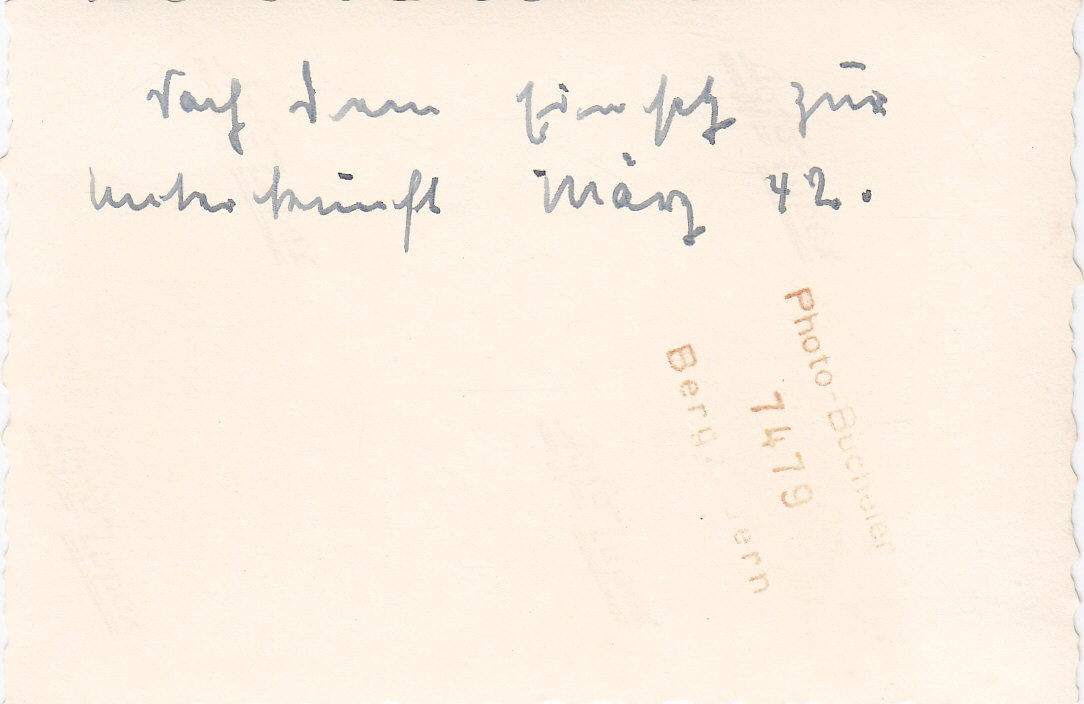 Nach dem Einsatz zur
Unterkunft März 42.
Photo-Bucheler
7479
Berg